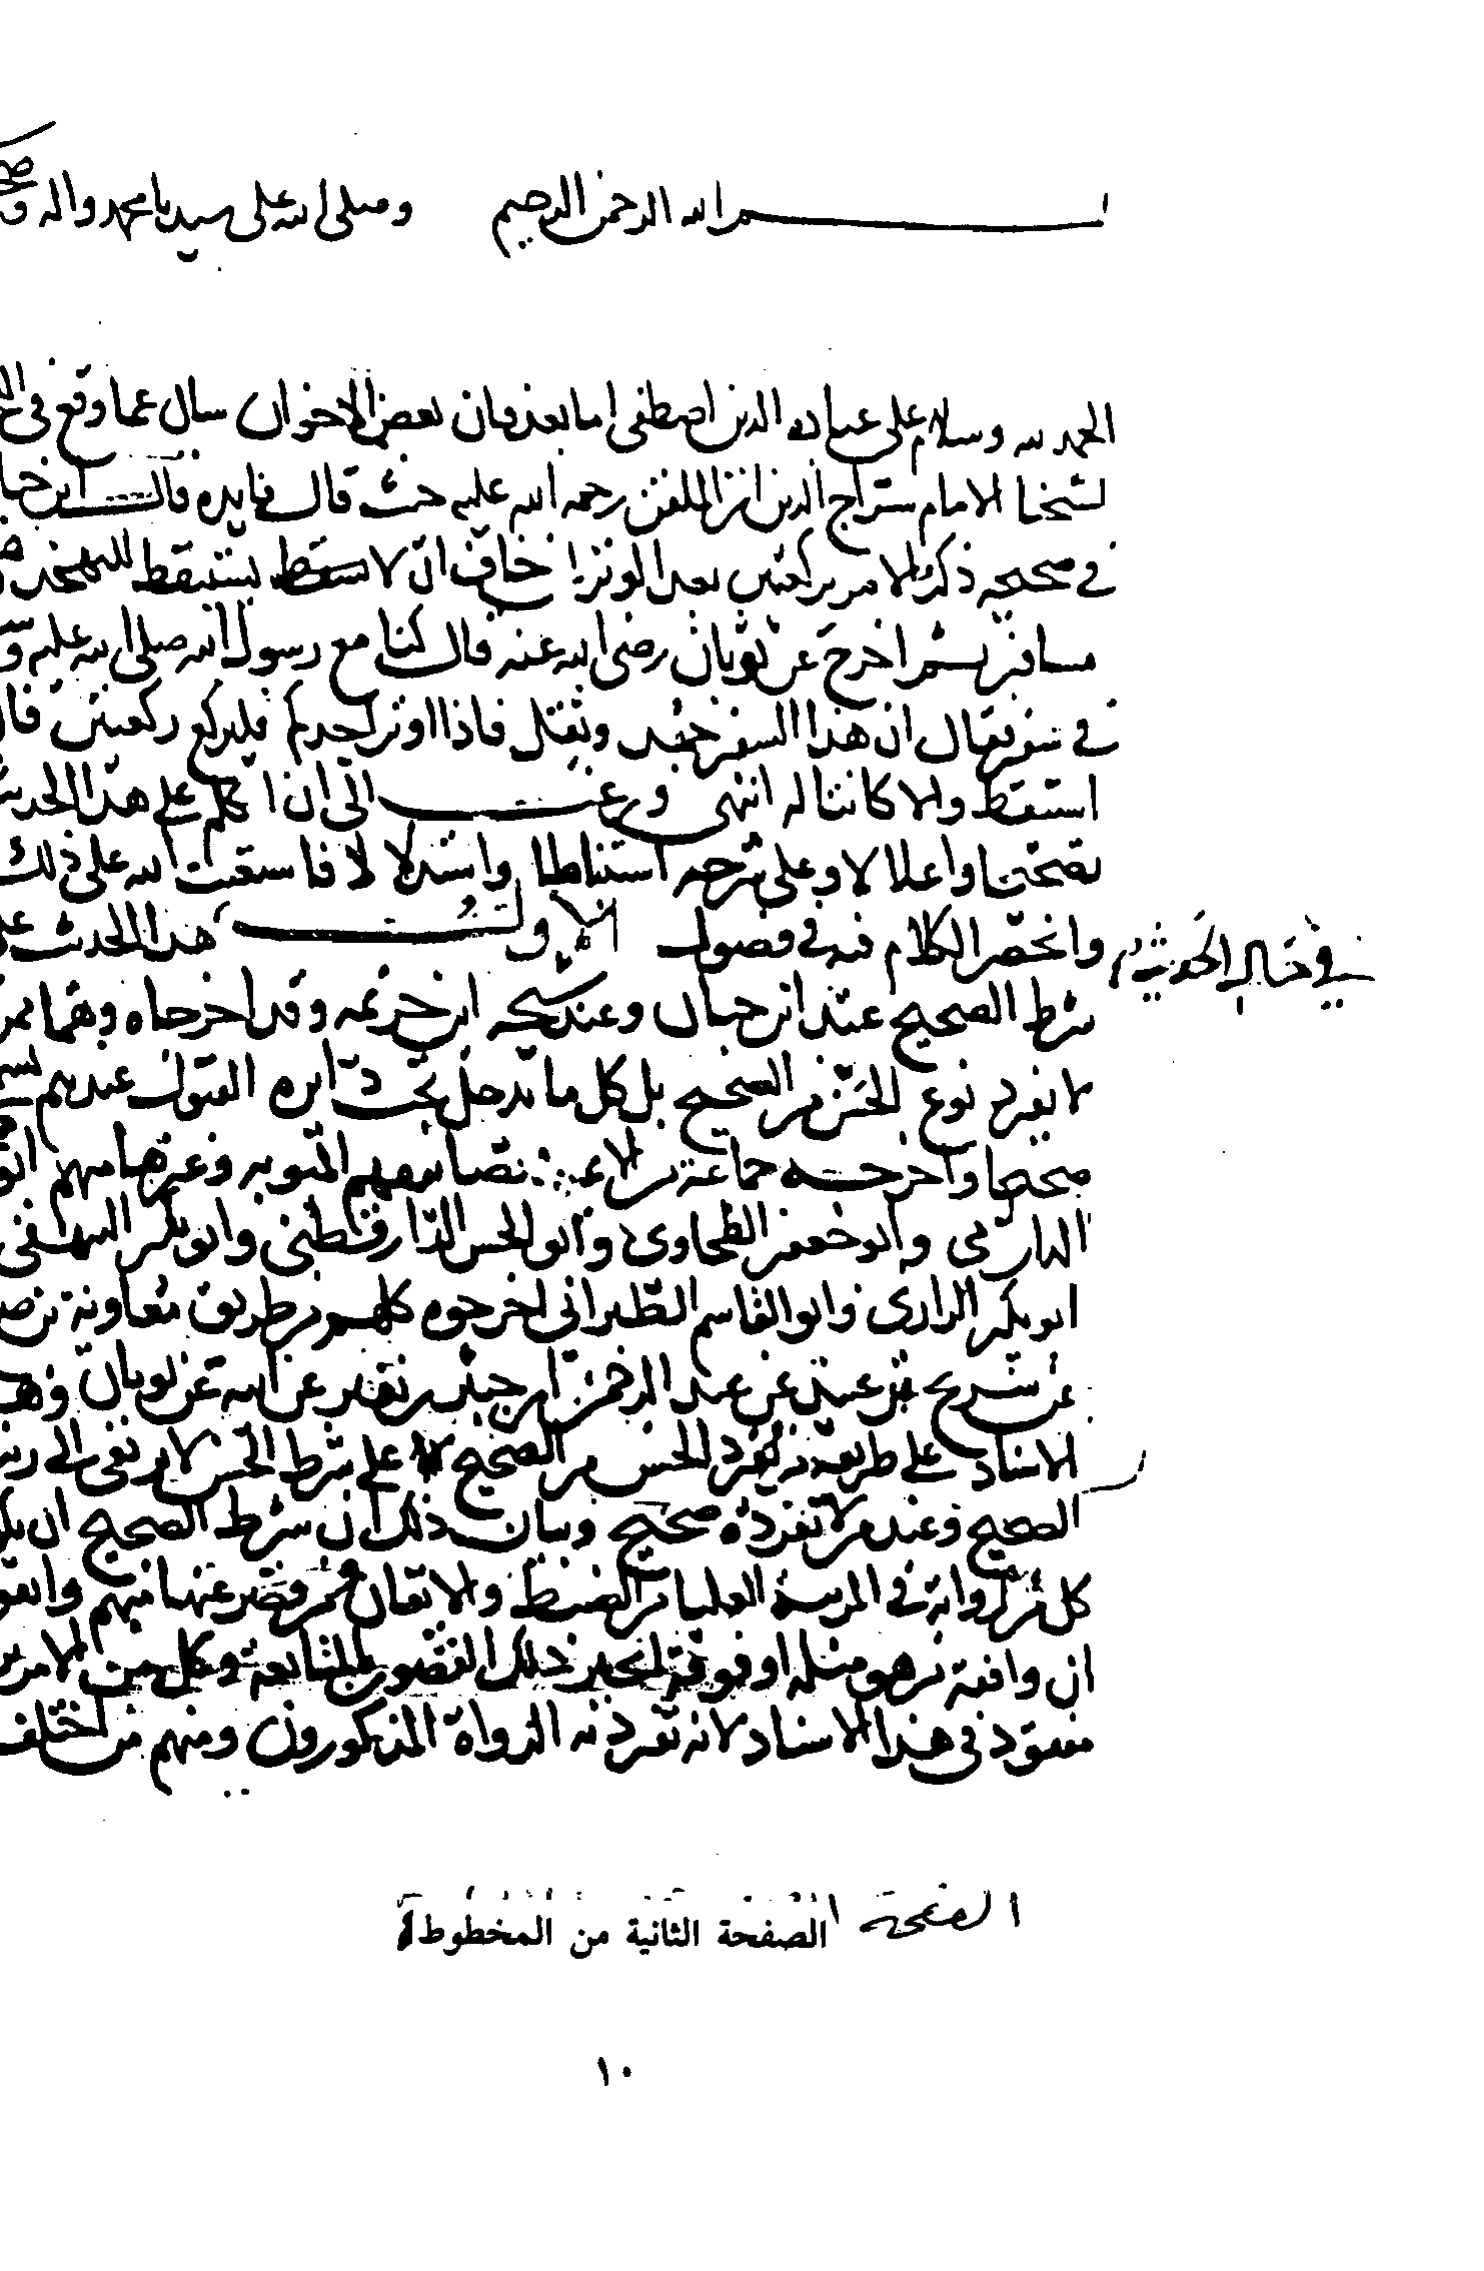 بسم الله الرحمن الرحيم وصلى الله على سيدنا محمد واله
الحمد لله وسلام على عباده الذين اصطفى اما بعد فان بعض الاخوان سال عما وقع في
لشيخنا الامام سراج الدين ابن الملقن رحمه الله عليه حيث قال فايده قال ابن
في صحيحه ذكر الامر بركعتين بعد الوتر خاف ان لا يستيقظ للتهجد
مسافر ثم اخرج عن ثوبان رضي الله عنه قال كنا مع رسول الله صلى الله عليه
في سفر فقال ان هذا السفر جهد وثقل فاذا اوتر احدكم فليركع ركعتين
استيقظ والا كانتا له انتهى ورغب الى ان اتكلم على هذا
تصحيحا واعلالا وعلى شرحه استنباطا واستدلالا فاستعنت الله على ذلك
وانحصر الكلام فيه في فصول الاول هذا الحديث
في حال الحديث
شرط الصحيح عند ابن حبان وعند شيخه ابن خزيمه وقد اخرجاه وهما
لا يفرد نوع الحسن من الصحيح بل كل ما يدخل تحت دايره القبول عندهم
صحيحا واخرجه جماعة من الائمة تصانيفهم المبوبه وغيرها منهم
الدارمي وابو جعفر الطحاوي وابو الحسن الدارقطني وابو بكر البيهقي
ابو بكر الرازى وابو القاسم الطبراني اخرجوه كلهم من طريق معاوية بن
عن شريح بن عبيد عن عبد الرحمن بن جبير بن نفير عن ابيه عن ثوبان
الاسناد على طريقه من يفرد الحسن من الصحيح على شرط الحسن لا يرتقى الى
الصحيح وعند من لا يفرده صحيح وبيان ذلك ان شرط الصحيح ان
كل من رواته في المرتبة العليا من الضبط والاتقان فمن قصر عنها منهم
ان وافقه من هو مثله او فوقه انجبر ذلك القصور بالمتابعة وكل من
مفقود في هذا الاسناد لانه تفرد به الرواة المذكورون ومنهم من اختلف
الصفحة الصفحة الثانية من المخطوطة
١٠